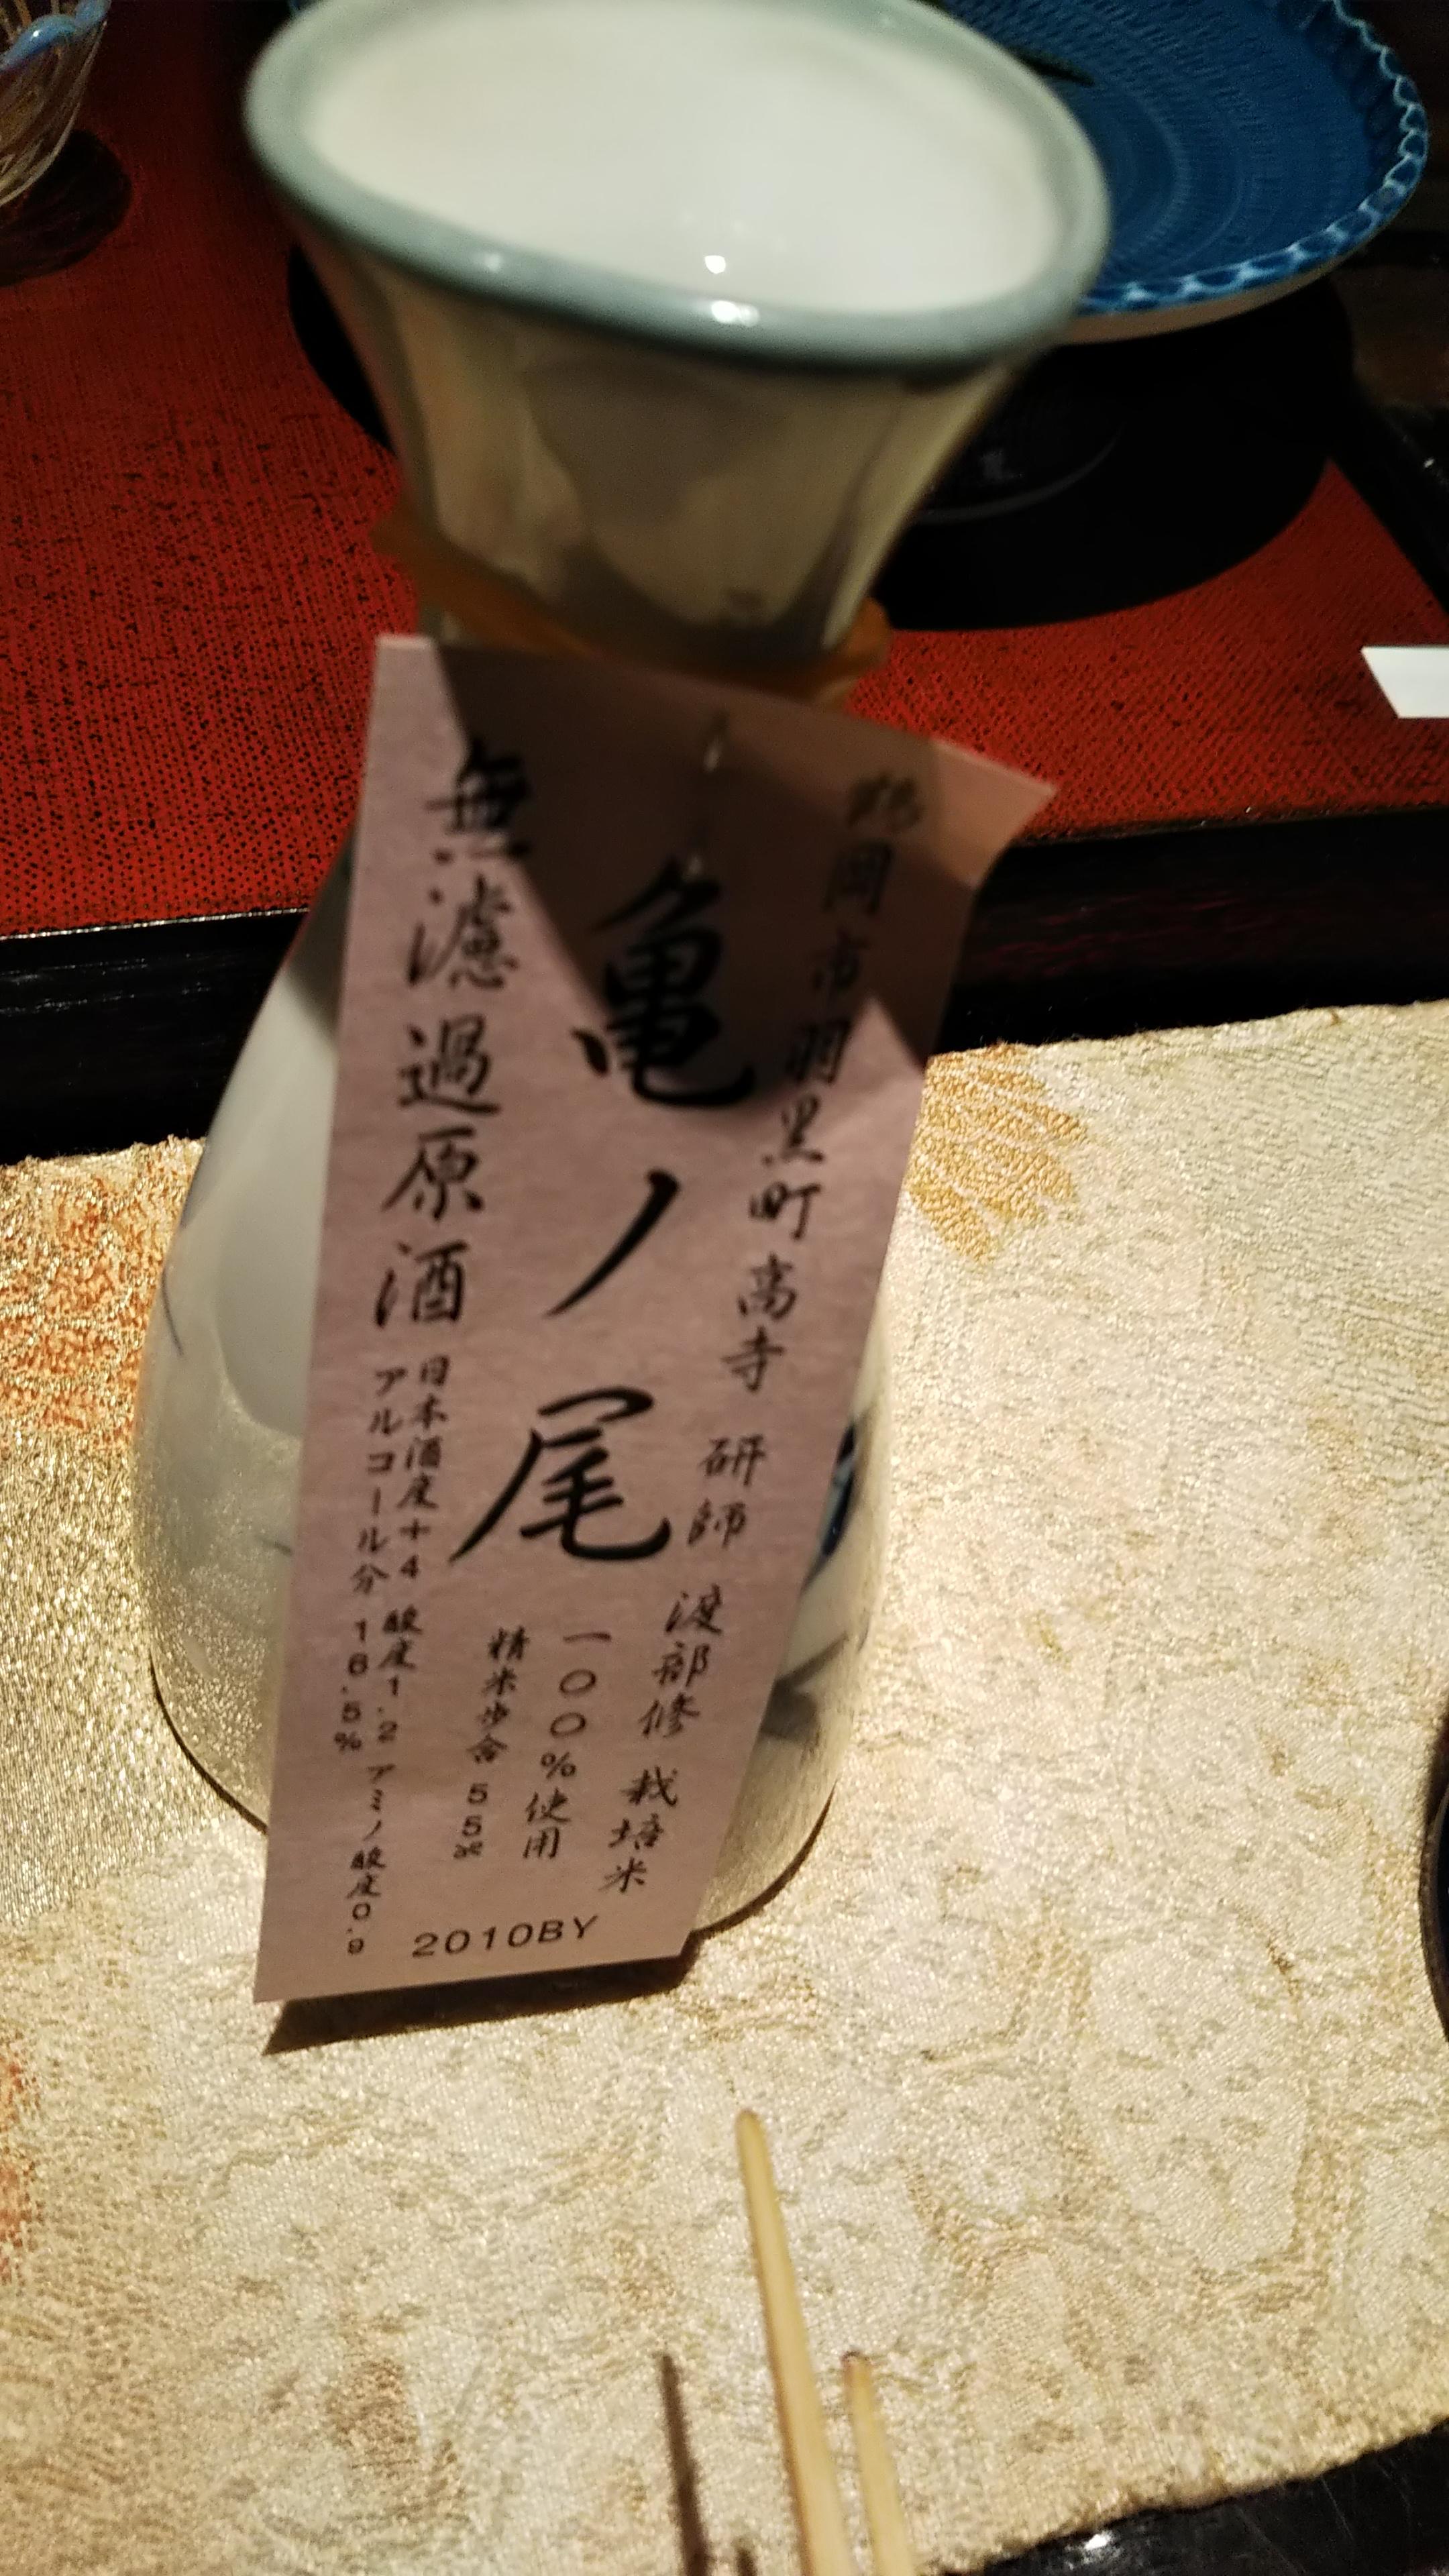 鶴岡市羽黒町高寺 研師 渡部修 栽培米
亀ノ尾
一〇〇%使用
精米歩合 55%
無濾過原酒
日本酒度+4 酸度1.2 アミノ酸度0.9
アルコール分 16.5%
2010BY